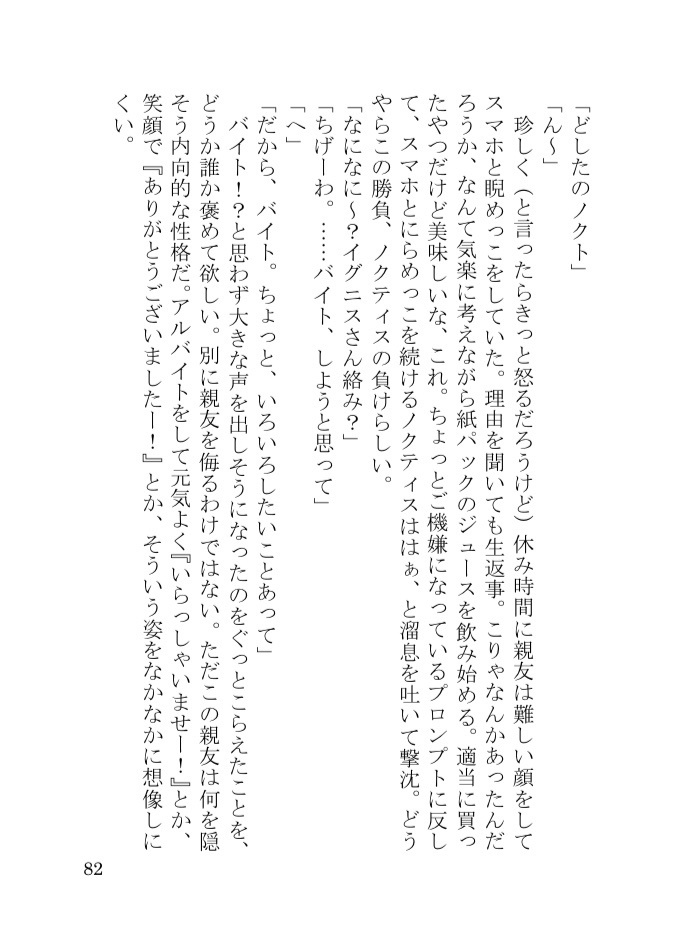 「どしたのノクト」
「ん～」
　珍しく（と言ったらきっと怒るだろうけど）休み時間に親友は難しい顔をして
スマホと睨めっこをしていた。理由を聞いても生返事。こりゃなんかあったんだ
ろうか、なんて気楽に考えながら紙パックのジュースを飲み始める。適当に買っ
たやつだけど美味しいな、これ。ちょっとご機嫌になっているプロンプトに反し
て、スマホとにらめっこを続けるノクティスははぁ、と溜息を吐いて撃沈。どう
やらこの勝負、ノクティスの負けらしい。
「なになに～？イグニスさん絡み？」
「ちげーわ。……バイト、しようと思って」
「へ」
「だから、バイト。ちょっと、いろいろしたいことあって」
　バイト！？と思わず大きな声を出しそうになったのをぐっとこらえたことを、
どうか誰か褒めて欲しい。別に親友を侮るわけではない。ただこの親友は何を隠
そう内向的な性格だ。アルバイトをして元気よく『いらっしゃいませー！』とか、
笑顔で『ありがとうございましたー！』とか、そういう姿をなかなかに想像しに
くい。
82